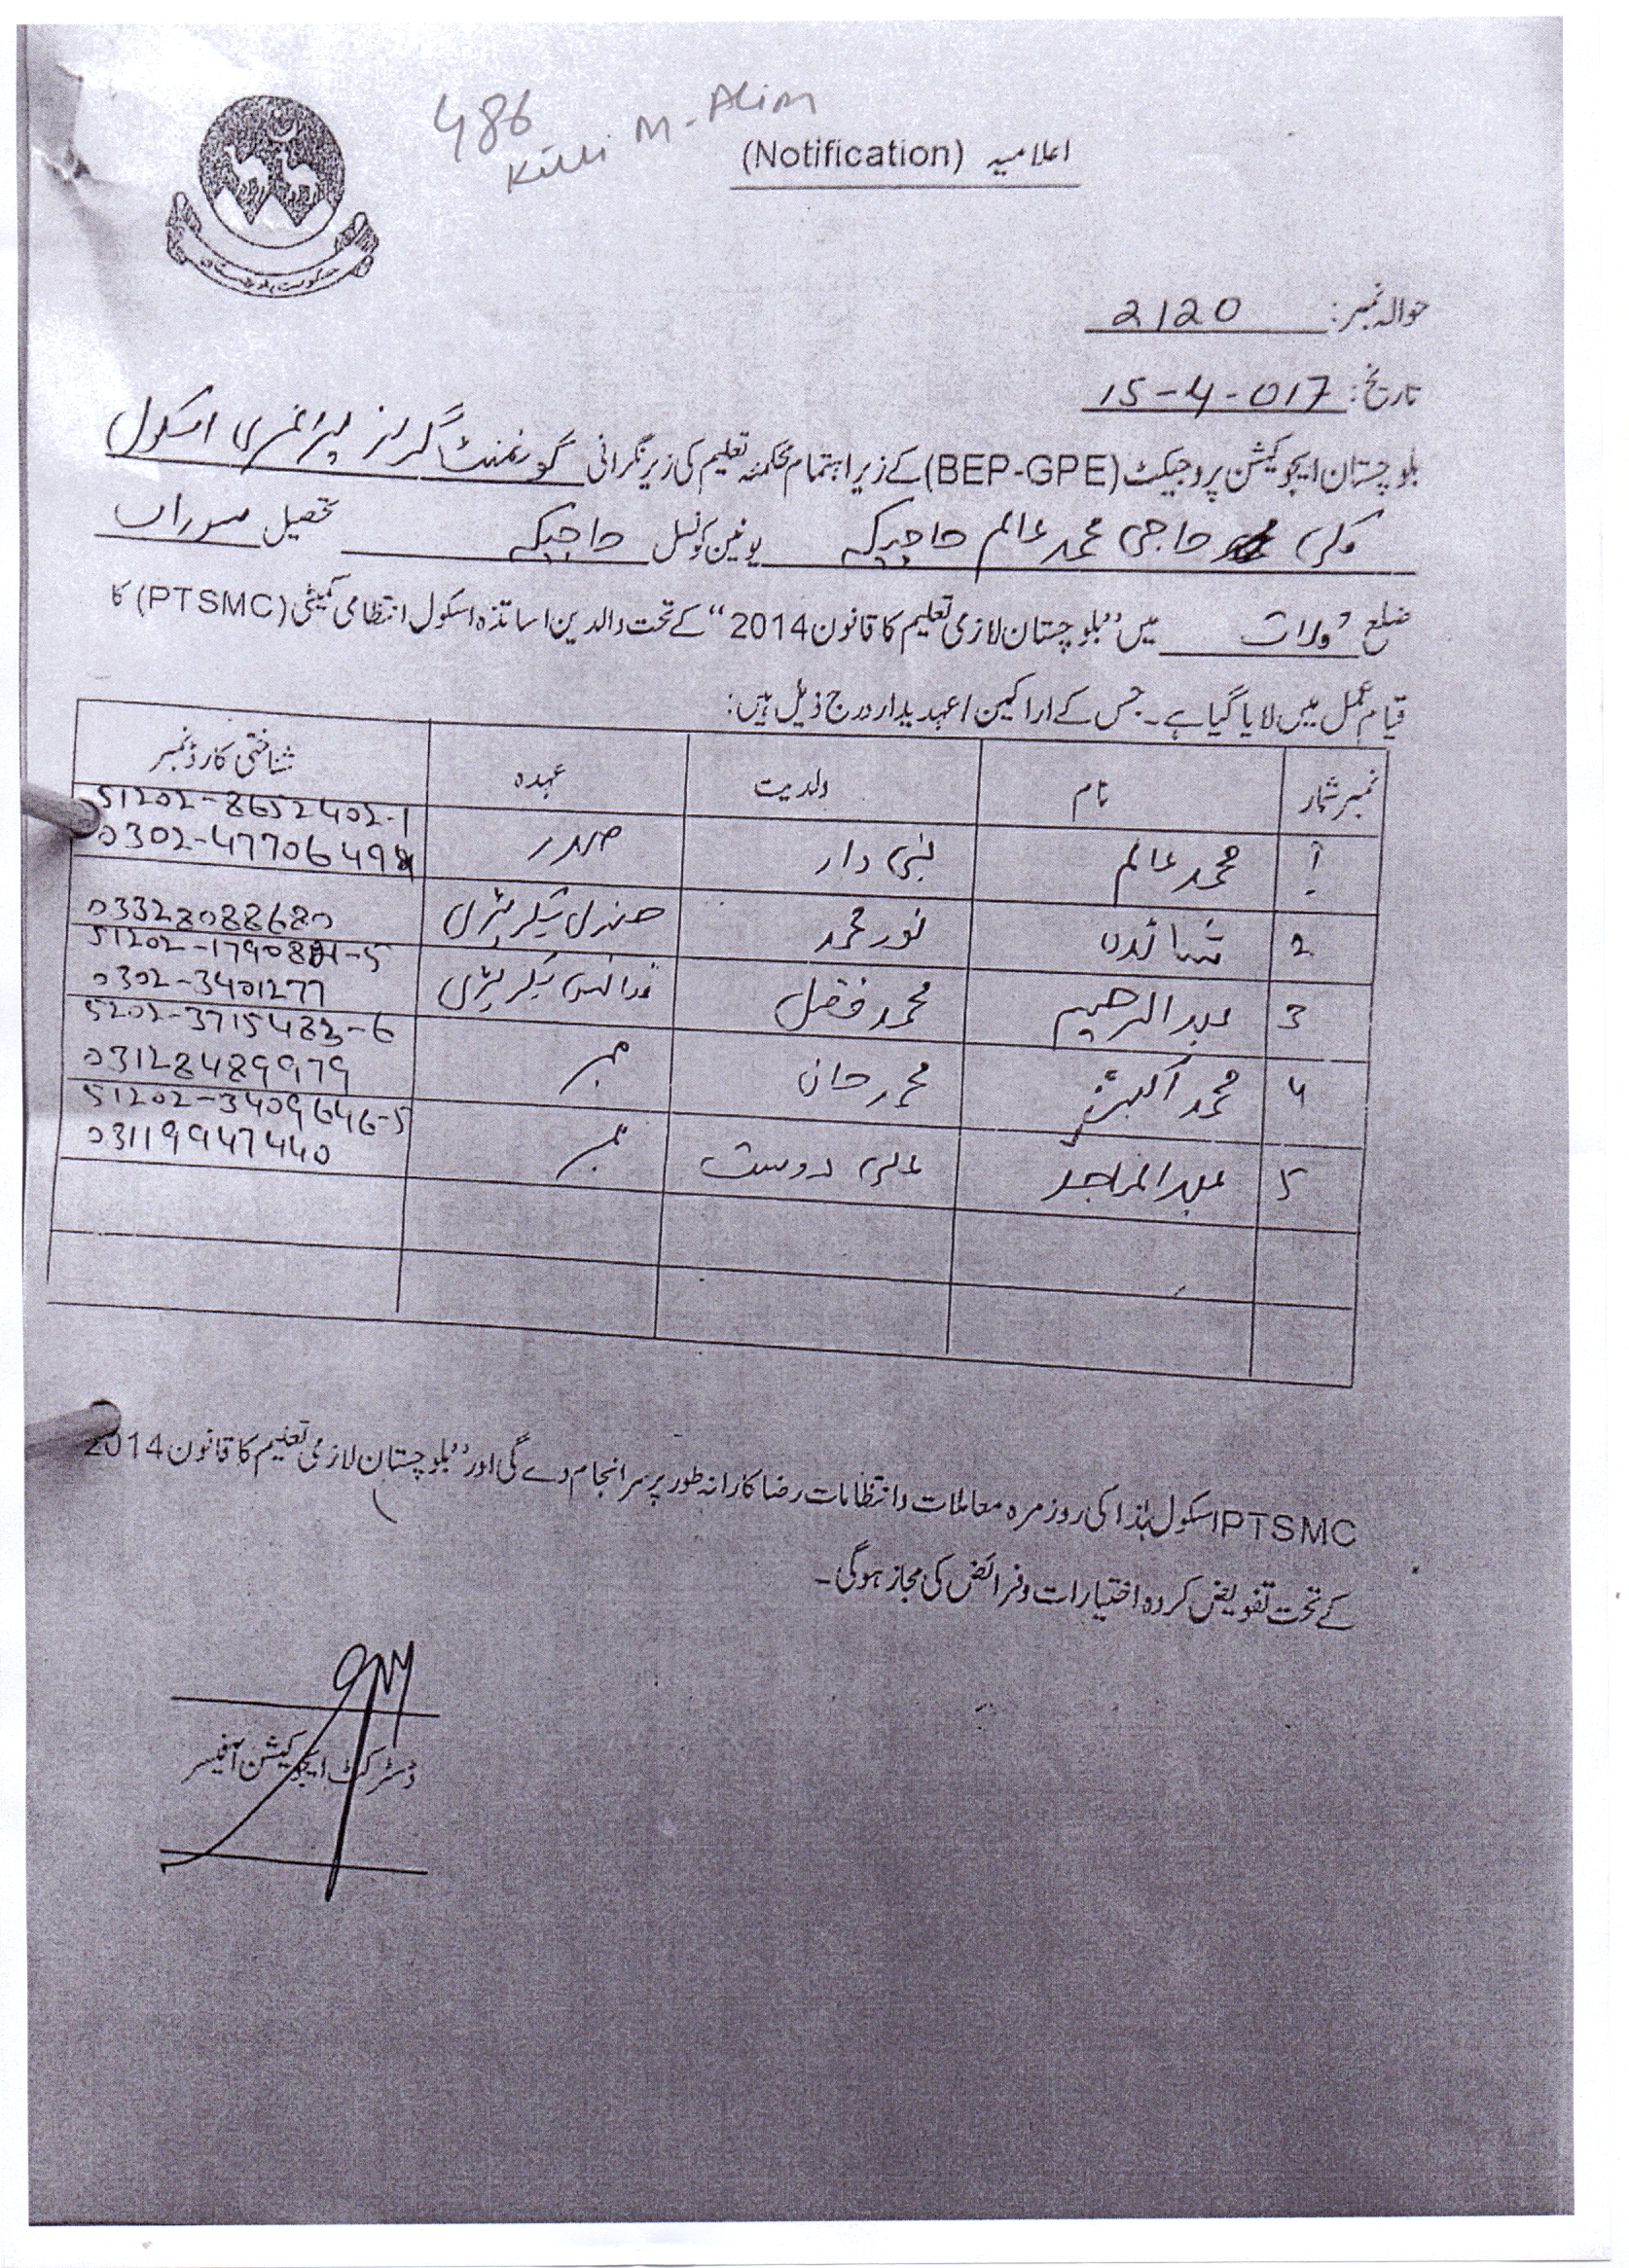 486
Killi M-Alim
اعلامیہ (Notification)
حکومت بلوچستان
حوالہ نمبر: 2120
تاریخ: 15-4-017
بلوچستان ایجوکیشن پروجیکٹ (BEP-GPE) کے زیر اہتمام محکمہ تعلیم کی زیر نگرانی گورنمنٹ گرلز پرائمری اسکول
کلی حاجی محمد عالم حاجیکہ یونین کونسل حاجیکہ تحصیل سوراب
ضلع قلات میں ”بلوچستان لازمی تعلیم کا قانون 2014“ کے تحت والدین اساتذہ اسکول انتظامی کمیٹی (PTSMC) کا
قیام عمل میں لایا گیا ہے۔ جس کے اراکین / عہدیدار درج ذیل ہیں:
نمبر شمار نام ولدیت عہدہ شناختی کارڈ نمبر
1 محمد عالم نبی داد صدر 51202-8652402-1
0302-4770649
2 نور محمد جنرل سیکریٹری 03328088680
3 عبدالرحیم محمد فضل فنانس سیکریٹری 51202-17908-5
0302-3401277
4 محمد اکبر محمد جان ممبر 5202-3715483-6
03128489979
5 عبدالماجد علی دوست ممبر 51202-3409646-5
03119947440
PTSMC اسکول ہٰذا کی روزمرہ معاملات و انتظامات رضاکارانہ طور پر سرانجام دے گی اور ”بلوچستان لازمی تعلیم کا قانون 2014
کے تحت تفویض کردہ اختیارات و فرائض کی مجاز ہوگی۔
ڈسٹرکٹ ایجوکیشن آفیسر